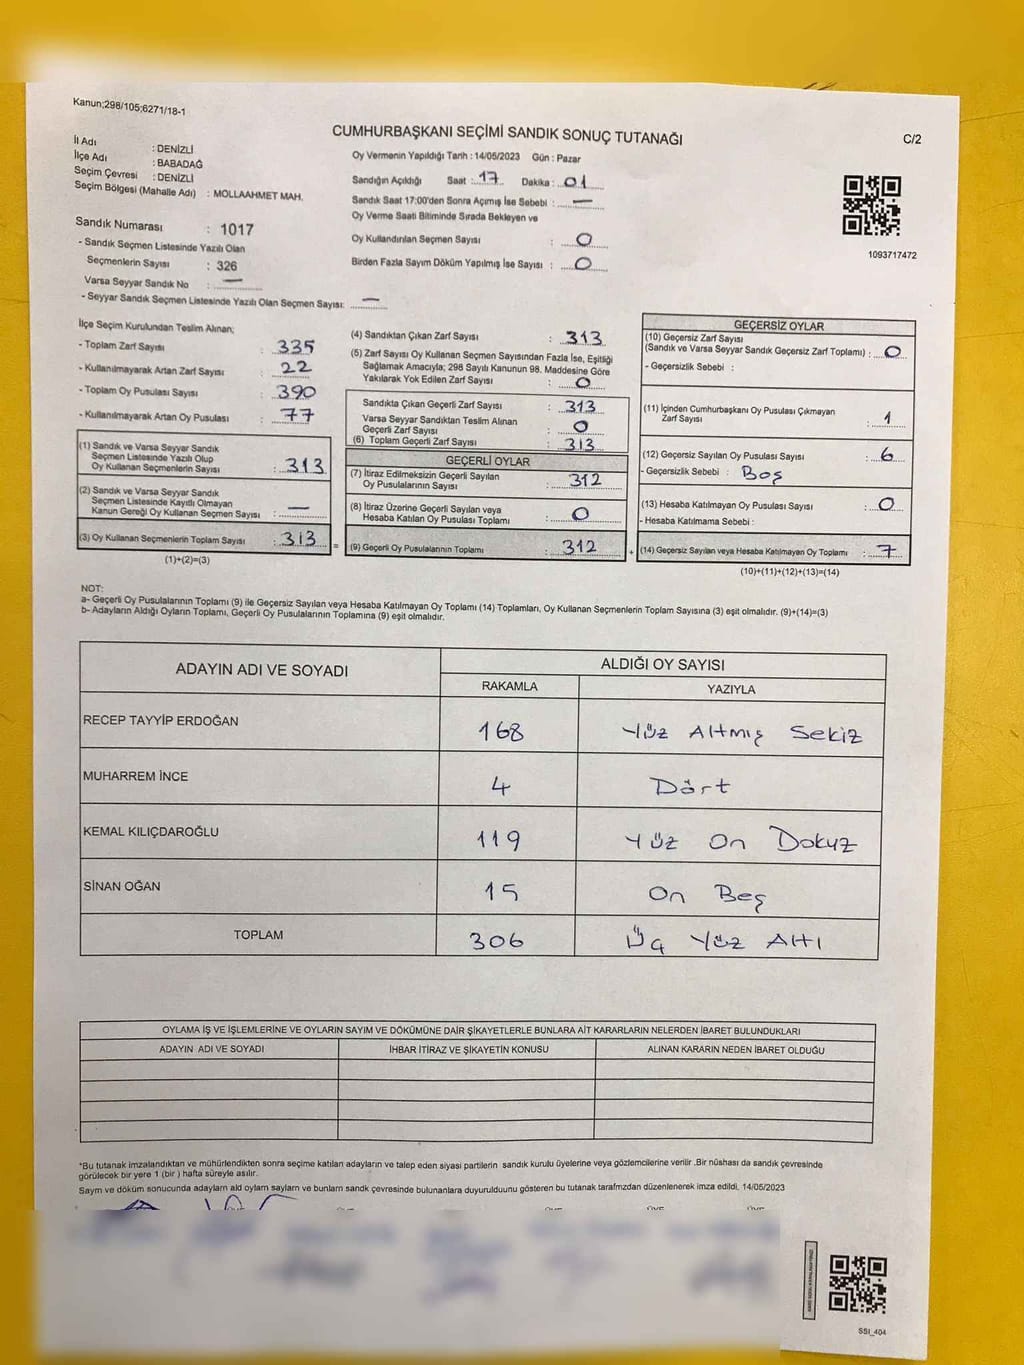 Kanun;298/105;6271/18-1
CUMHURBAŞKANI SEÇİMİ SANDIK SONUÇ TUTANAĞI
C/2
İl Adı : DENİZLİ
İlçe Adı : BABADAĞ
Seçim Çevresi : DENİZLİ
Seçim Bölgesi (Mahalle Adı) : MOLLAAHMET MAH.
Oy Vermenin Yapıldığı Tarih : 14/05/2023 Gün : Pazar
Sandığın Açıldığı Saat : 17 Dakika : 01
Sandık Saat 17:00'den Sonra Açımış İse Sebebi : —
Oy Verme Saati Bitiminde Sırada Bekleyen ve
Oy Kullandırılan Seçmen Sayısı : 0
Birden Fazla Sayım Döküm Yapılmış İse Sayısı : 0
1093717472
Sandık Numarası : 1017
- Sandık Seçmen Listesinde Yazılı Olan
Seçmenlerin Sayısı : 326
Varsa Seyyar Sandık No : —
- Seyyar Sandık Seçmen Listesinde Yazılı Olan Seçmen Sayısı: —
İlçe Seçim Kurulundan Teslim Alınan;
- Toplam Zarf Sayısı : 335
- Kullanılmayarak Artan Zarf Sayısı : 22
- Toplam Oy Pusulası Sayısı : 390
- Kullanılmayarak Artan Oy Pusulası : 77
(1) Sandık ve Varsa Seyyar Sandık
Seçmen Listesinde Yazılı Olup
Oy Kullanan Seçmenlerin Sayısı : 313
(2) Sandık ve Varsa Seyyar Sandık
Seçmen Listesinde Kayıtlı Olmayan
Kanun Gereği Oy Kullanan Seçmen Sayısı : —
(3) Oy Kullanan Seçmenlerin Toplam Sayısı : 313 =
(1)+(2)=(3)
(4) Sandıktan Çıkan Zarf Sayısı : 313
(5) Zarf Sayısı Oy Kullanan Seçmen Sayısından Fazla İse, Eşitliği
Sağlamak Amacıyla; 298 Sayılı Kanunun 98. Maddesine Göre
Yakılarak Yok Edilen Zarf Sayısı : 0
Sandıkta Çıkan Geçerli Zarf Sayısı : 313
Varsa Seyyar Sandıktan Teslim Alınan
Geçerli Zarf Sayısı : 0
(6) Toplam Geçerli Zarf Sayısı : 313
GEÇERLİ OYLAR
(7) İtiraz Edilmeksizin Geçerli Sayılan
Oy Pusulalarının Sayısı : 312
(8) İtiraz Üzerine Geçerli Sayılan veya
Hesaba Katılan Oy Pusulası Toplamı : 0
(9) Geçerli Oy Pusulalarının Toplamı : 312 +
GEÇERSİZ OYLAR
(10) Geçersiz Zarf Sayısı
(Sandık ve Varsa Seyyar Sandık Geçersiz Zarf Toplamı) : 0
- Geçersizlik Sebebi :
(11) İçinden Cumhurbaşkanı Oy Pusulası Çıkmayan
Zarf Sayısı : 1
(12) Geçersiz Sayılan Oy Pusulası Sayısı : 6
- Geçersizlik Sebebi : Boş
(13) Hesaba Katılmayan Oy Pusulası Sayısı : 0
- Hesaba Katılmama Sebebi :
(14) Geçersiz Sayılan veya Hesaba Katılmayan Oy Toplamı : 7
(10)+(11)+(12)+(13)=(14)
NOT:
a- Geçerli Oy Pusulalarının Toplamı (9) ile Geçersiz Sayılan veya Hesaba Katılmayan Oy Toplamı (14) Toplamları, Oy Kullanan Seçmenlerin Toplam Sayısına (3) eşit olmalıdır. (9)+(14)=(3)
b- Adayların Aldığı Oyların Toplamı, Geçerli Oy Pusulalarının Toplamına (9) eşit olmalıdır.
ADAYIN ADI VE SOYADI
ALDIĞI OY SAYISI
RAKAMLA YAZIYLA
RECEP TAYYİP ERDOĞAN 168 Yüz Altmış Sekiz
MUHARREM İNCE 4 Dört
KEMAL KILIÇDAROĞLU 119 Yüz On Dokuz
SİNAN OĞAN 15 On Beş
TOPLAM 306 Üç Yüz Altı
OYLAMA İŞ VE İŞLEMLERİNE VE OYLARIN SAYIM VE DÖKÜMÜNE DAİR ŞİKAYETLERLE BUNLARA AİT KARARLARIN NELERDEN İBARET BULUNDUKLARI
ADAYIN ADI VE SOYADI İHBAR İTİRAZ VE ŞİKAYETİN KONUSU ALINAN KARARIN NEDEN İBARET OLDUĞU
*Bu tutanak imzalandıktan ve mühürlendikten sonra seçime katılan adayların ve talep eden siyasi partilerin sandık kurulu üyelerine veya gözlemcilerine verilir .Bir nüshası da sandık çevresinde
görülecek bir yere 1 (bir ) hafta süreyle asılır.
Sayım ve döküm sonucunda adayların ald oyların sayların ve bunların sandık çevresinde bulunanlara duyurulduunu gösteren bu tutanak tarafmzdan düzenlenerek imza edildi. 14/05/2023
SSI_404